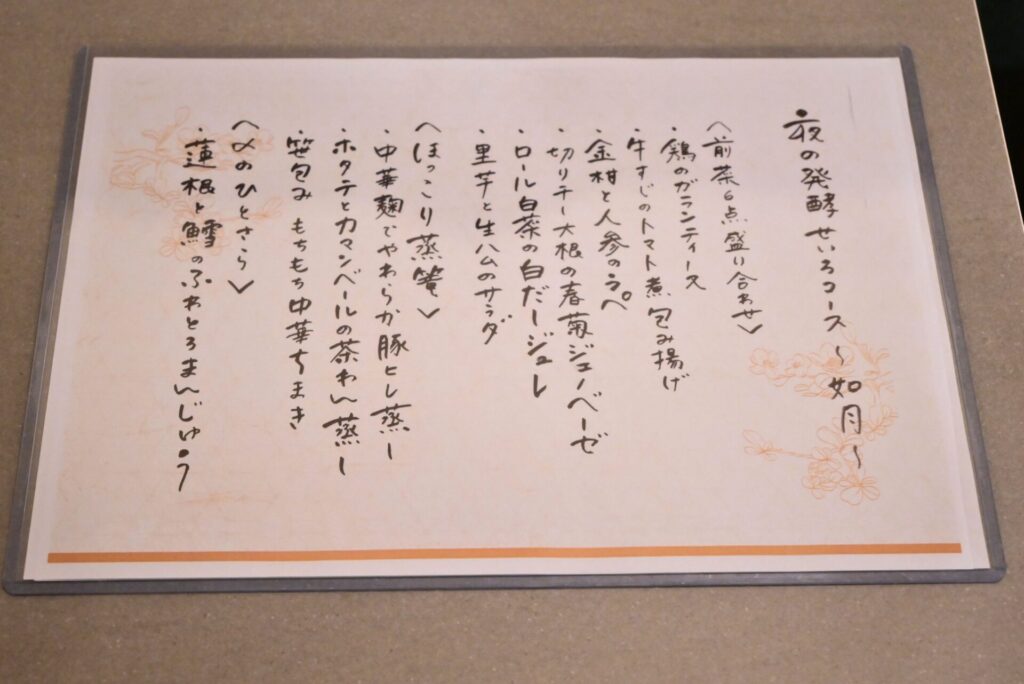 夜の発酵せいろコース 〜如月〜
〈前菜6点盛り合わせ〉
・鶏のガランティーヌ
・牛すじのトマト煮包み揚げ
・金柑と人参のラペ
・切りチー大根の春菊ジェノベーゼ
・ロール白菜の白だしジュレ
・里芋と生ハムのサラダ
〈ほっこり蒸篭〉
・中華麹でやわらか豚ヒレ蒸し
・ホタテとカマンベールの茶わん蒸し
・笹包み もちもち中華ちまき
〈〆のひとさら〉
・蓮根と鱈のふわとろまんじゅう